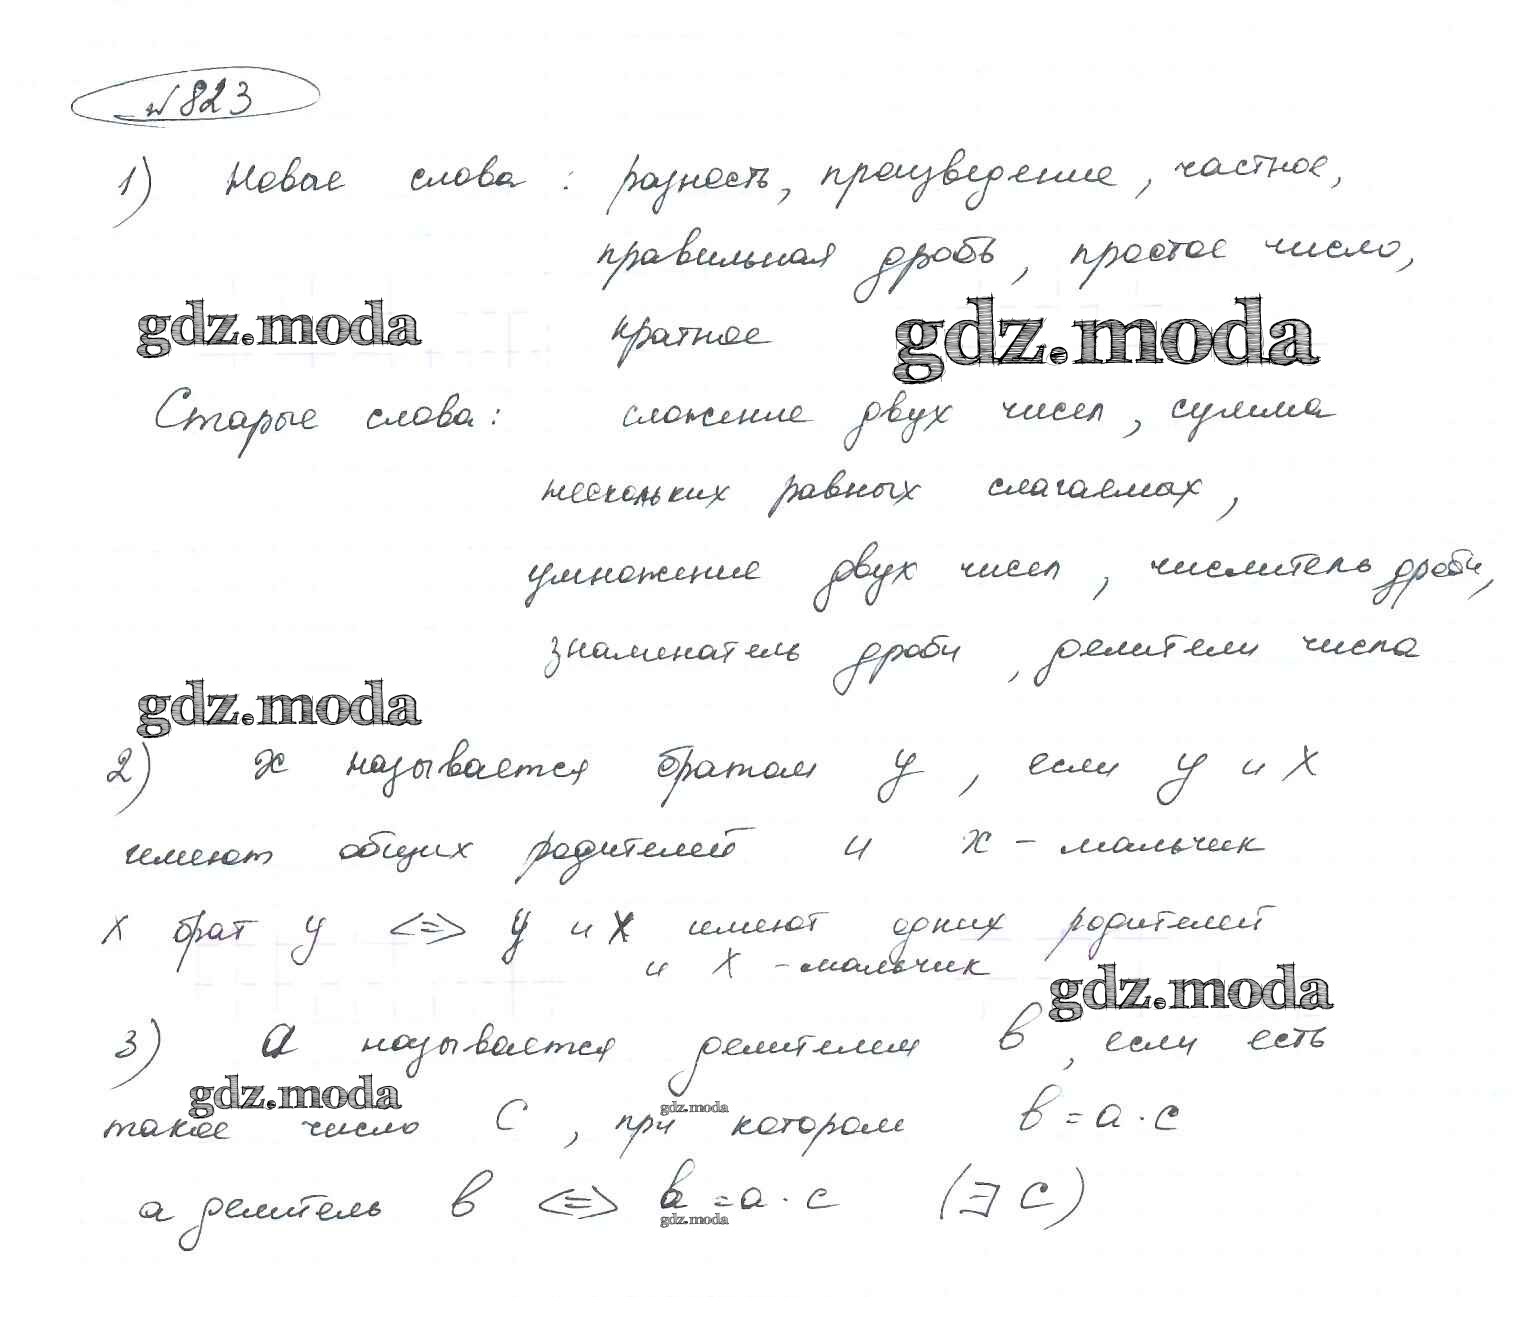 № 823
1) Новые слова : разность, произведение, частное,
правильная дробь, простое число,
gdz.moda кратное gdz.moda
Старые слова: сложение двух чисел, сумма
нескольких равных слагаемых,
умножение двух чисел, числитель дроби,
знаменатель дроби, делители числа
gdz.moda
2) x называется братом y, если y и x
имеют общих родителей и x - мальчик
x брат y <=> y и x имеют одних родителей
и x - мальчик
gdz.moda
3) a называется делителем b, если есть
gdz.moda gdz.moda
такое число c, при котором b = a · c
a делитель b <=> b = a · c (∃ c)
gdz.moda